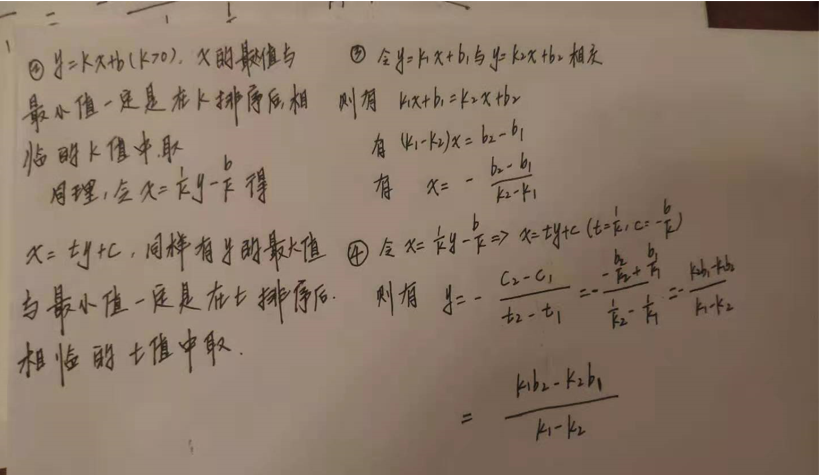 ② y=kx+b(k>0), x的最大值与
最小值一定是在k排序后,相
临的k值中取
同理,令x=\frac{1}{k}y-\frac{b}{k}得
x=ty+c,同样有y的最大值
与最小值一定是在t排序后.
相临的t值中取.
③ 令y=k₁x+b₁与y=k₂x+b₂相交
则有 k₁x+b₁=k₂x+b₂
有 (k₁-k₂)x=b₂-b₁
有 x=-\frac{b₂-b₁}{k₂-k₁}
④ 令x=\frac{1}{k}y-\frac{b}{k}=>x=ty+c(t=\frac{1}{k},c=-\frac{b}{k})
则有 y=-\frac{c₂-c₁}{t₂-t₁}=-\frac{-\frac{b₂}{k₂}+\frac{b₁}{k₁}}{\frac{1}{k₂}-\frac{1}{k₁}}=-\frac{k₂b₁-k₁b₂}{k₁-k₂}
=\frac{k₁b₂-k₂b₁}{k₁-k₂}